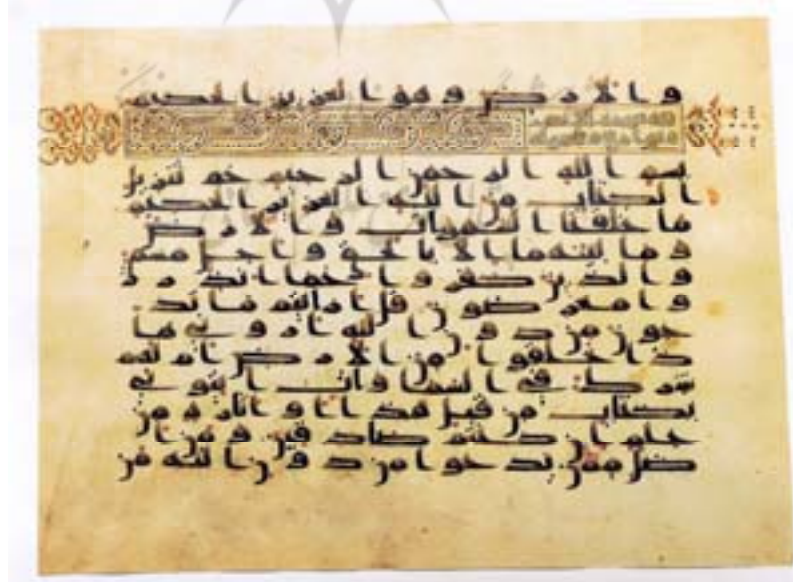 والارض وهو العزيز الحكيم
بسم الله الرحمن الرحيم حم تنزيل
الكتاب من الله العزيز الحكيم
ما خلقنا السموات والارض
وما بينهما الا بالحق واجل مسمى
والذين كفروا عما انذر
وا معرضون قل ارايتم ما تد
عون من دون الله اروني ما
ذا خلقوا من الارض ام لهم
شرك في السموات ايتوني
بكتاب من قبل هذا او اثارة من
علم ان كنتم صادقين ومن ا
ضل ممن يدعوا من دون الله من